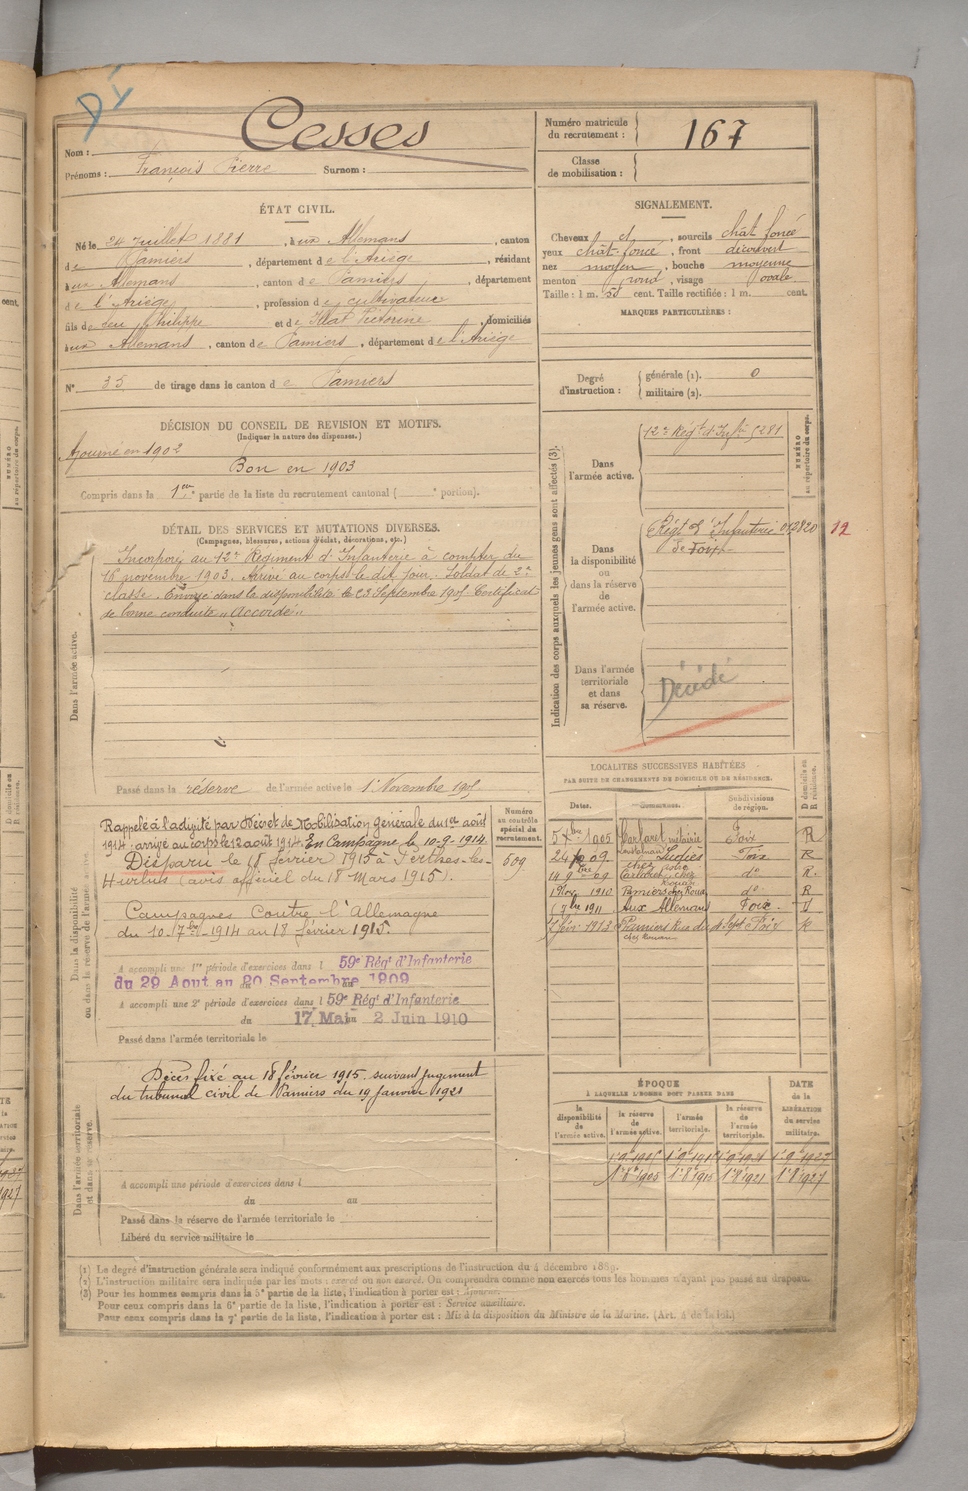 DÝ
Nom : Cesses
Prénoms : François Pierre Surnom :
Numéro matricule du recrutement : 167
Classe de mobilisation :
ÉTAT CIVIL.
Né le 24 Juillet 1881, à ux Allemans, canton
de Pamiers, département de l'Ariège, résidant
à ux Allemans, canton de Pamiers, département
de l'Ariège, profession de cultivateur
fils de feu Philippe et de Illat Victorine, domiciliés
à ux Allemans, canton de Pamiers, département de l'Ariège
N° 35 de tirage dans le canton de Pamiers
SIGNALEMENT.
Cheveux et, sourcils chât. foncé
yeux chât. foncé, front découvert
nez moyen, bouche moyenne
menton rond, visage ovale
Taille : 1 m. 55 cent. Taille rectifiée : 1 m. cent.
MARQUES PARTICULIÈRES :
Degré d'instruction : générale (1). 0
militaire (2).
DÉCISION DU CONSEIL DE REVISION ET MOTIFS.
(Indiquer la nature des dispenses.)
Ajourné en 1902
Bon en 1903
Compris dans la 1ere partie de la liste du recrutement cantonal ( e portion).
DÉTAIL DES SERVICES ET MUTATIONS DIVERSES.
(Campagnes, blessures, actions d'éclat, décorations, etc.)
Dans l'armée active.
Incorporé au 12e Régiment d'Infanterie à compter du
16 novembre 1903. Arrivé au corps le dit jour. Soldat de 2e
classe. Envoyé dans la disponibilité le 23 Septembre 1905. Certificat
de bonne conduite "Accordé".
Passé dans la réserve de l'armée active le 1er Novembre 1905
Indication des corps auxquels les jeunes gens sont affectés (3).
NUMÉRO au répertoire du corps.
Dans l'armée active.
12e Régt d'Infie 5281
Dans la disponibilité ou dans la réserve de l'armée active.
Régt d'Infanterie 012820 12
de Foix
Dans l'armée territoriale et dans sa réserve.
Décédé
Dans la disponibilité ou dans la réserve de l'armée active.
Numéro au contrôle spécial du recrutement.
609
Rappelé à l'activité par Décret de Mobilisation générale du 1er août
1914 : arrivé au corps le 12 août 1914. En Campagne le 10-9-1914.
Disparu le 18 février 1915 à Perthes-les-
Hurlus (avis officiel du 18 Mars 1915).
Campagnes Contre l'Allemagne
du 10 7bre 1914 au 18 février 1915.
A accompli une 1re période d'exercices dans l 59e Régt d'Infanterie
du 29 Aout au 20 Septembre 1909
A accompli une 2e période d'exercices dans l 59e Régt d'Infanterie
du 17 Mai au 2 Juin 1910
Passé dans l'armée territoriale le
LOCALITÉS SUCCESSIVES HABITÉES
PAR SUITE DE CHANGEMENTS DE DOMICILE OU DE RÉSIDENCE.
Dates. Communes. Subdivisions de région. D domicile ou R résidence.
5 Xbre 1905 Carlaret Foix R
24 09 Ludiès Foix R
14 9bre 09 Carlaret chez do R
1910 Pamiers chez Rouan do R
1911 Aux Allemans Foix D
7 févr 1912 Pamiers Rue du 4 Sept Foix R
chez Rouan
Dans l'armée territoriale et dans sa réserve.
Décès fixé au 18 février 1915 suivant jugement
du tribunal civil de Pamiers du 19 Janvier 1921
A accompli une période d'exercices dans l
du au
Passé dans la réserve de l'armée territoriale le
Libéré du service militaire le
ÉPOQUE
À LAQUELLE L'HOMME DOIT PASSER DANS
la disponibilité de l'armée active. la réserve de l'armée active. l'armée territoriale. la réserve de l'armée territoriale. DATE de la LIBÉRATION du service militaire.
1er 8bre 1905 1er 8bre 1915 1er 8bre 1921 1er 8bre 1927
(1) Le degré d'instruction générale sera indiqué conformément aux prescriptions de l'instruction du 4 décembre 1889.
(2) L'instruction militaire sera indiquée par les mots : exercé ou non exercé. On comprendra comme non exercés tous les hommes n'ayant pas passé au drapeau.
(3) Pour les hommes compris dans la 5e partie de la liste, l'indication à porter est : Ajourné.
Pour ceux compris dans la 6e partie de la liste, l'indication à porter est : Service auxiliaire.
Pour ceux compris dans la 7e partie de la liste, l'indication à porter est : Mis à la disposition du Ministre de la Marine. (Art. 4 de la loi.)